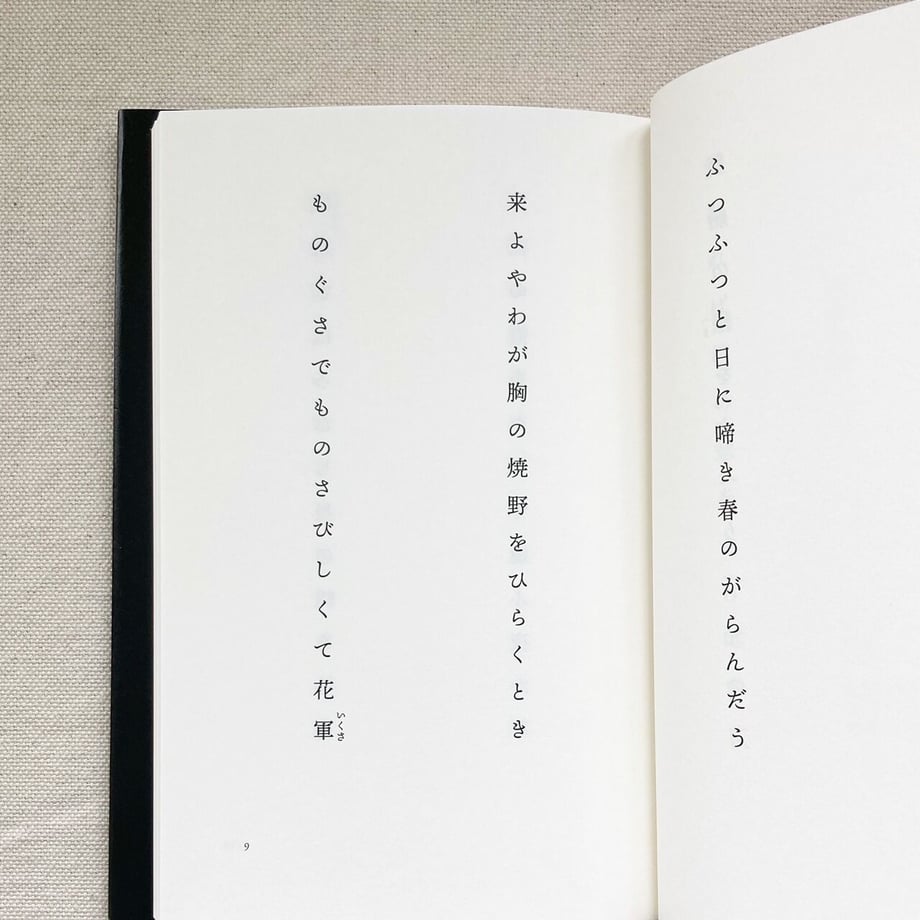 ふつふつと日に啼き春のがらんだう
来よやわが胸の焼野をひらくとき
ものぐさでものさびしくて花軍
いくさ
9